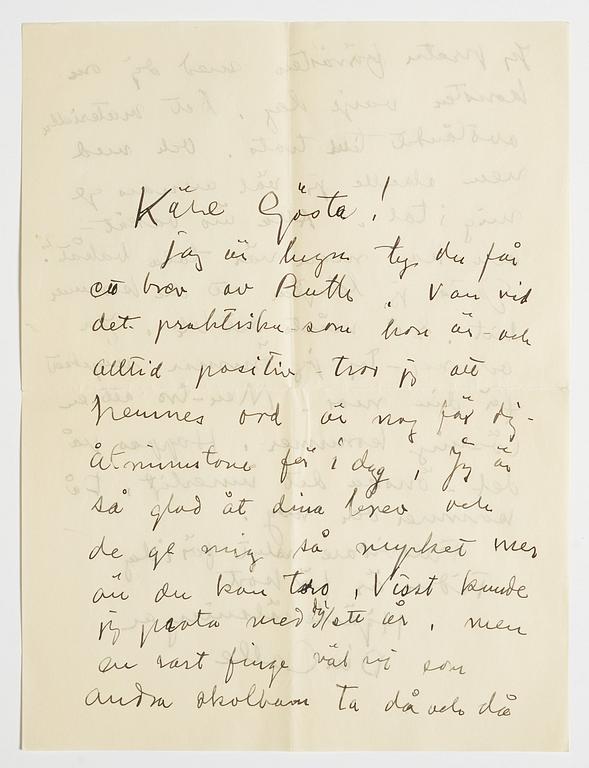 Käre Gösta!
Jag är lugn ty du får
ett brev av Ruth, Van vid
det praktiska som hon är och
alltid positiv tror jg att
hennes ord är nog för dig -
åtminstone för i dag, Jg är
så glad åt dina brev och
de ge mig så mycket mer
än du kan tro, Visst kunde
jg prata med dig / ett år, men
en rast finge väl vi som
andra skolbarn ta då och då